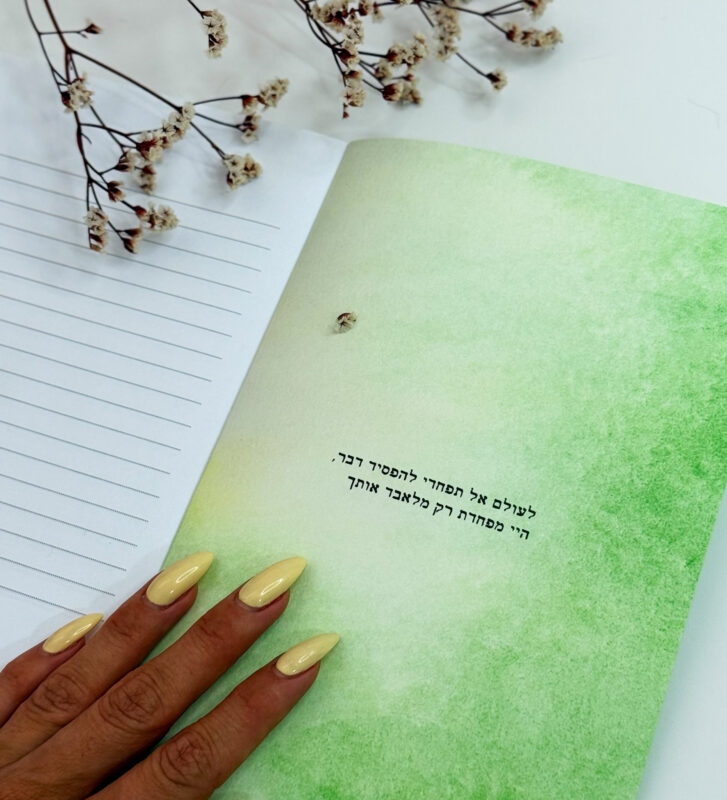 לעולם אל תפחדי להפסיד דבר,
היי מפחדת רק מלאבד אותך